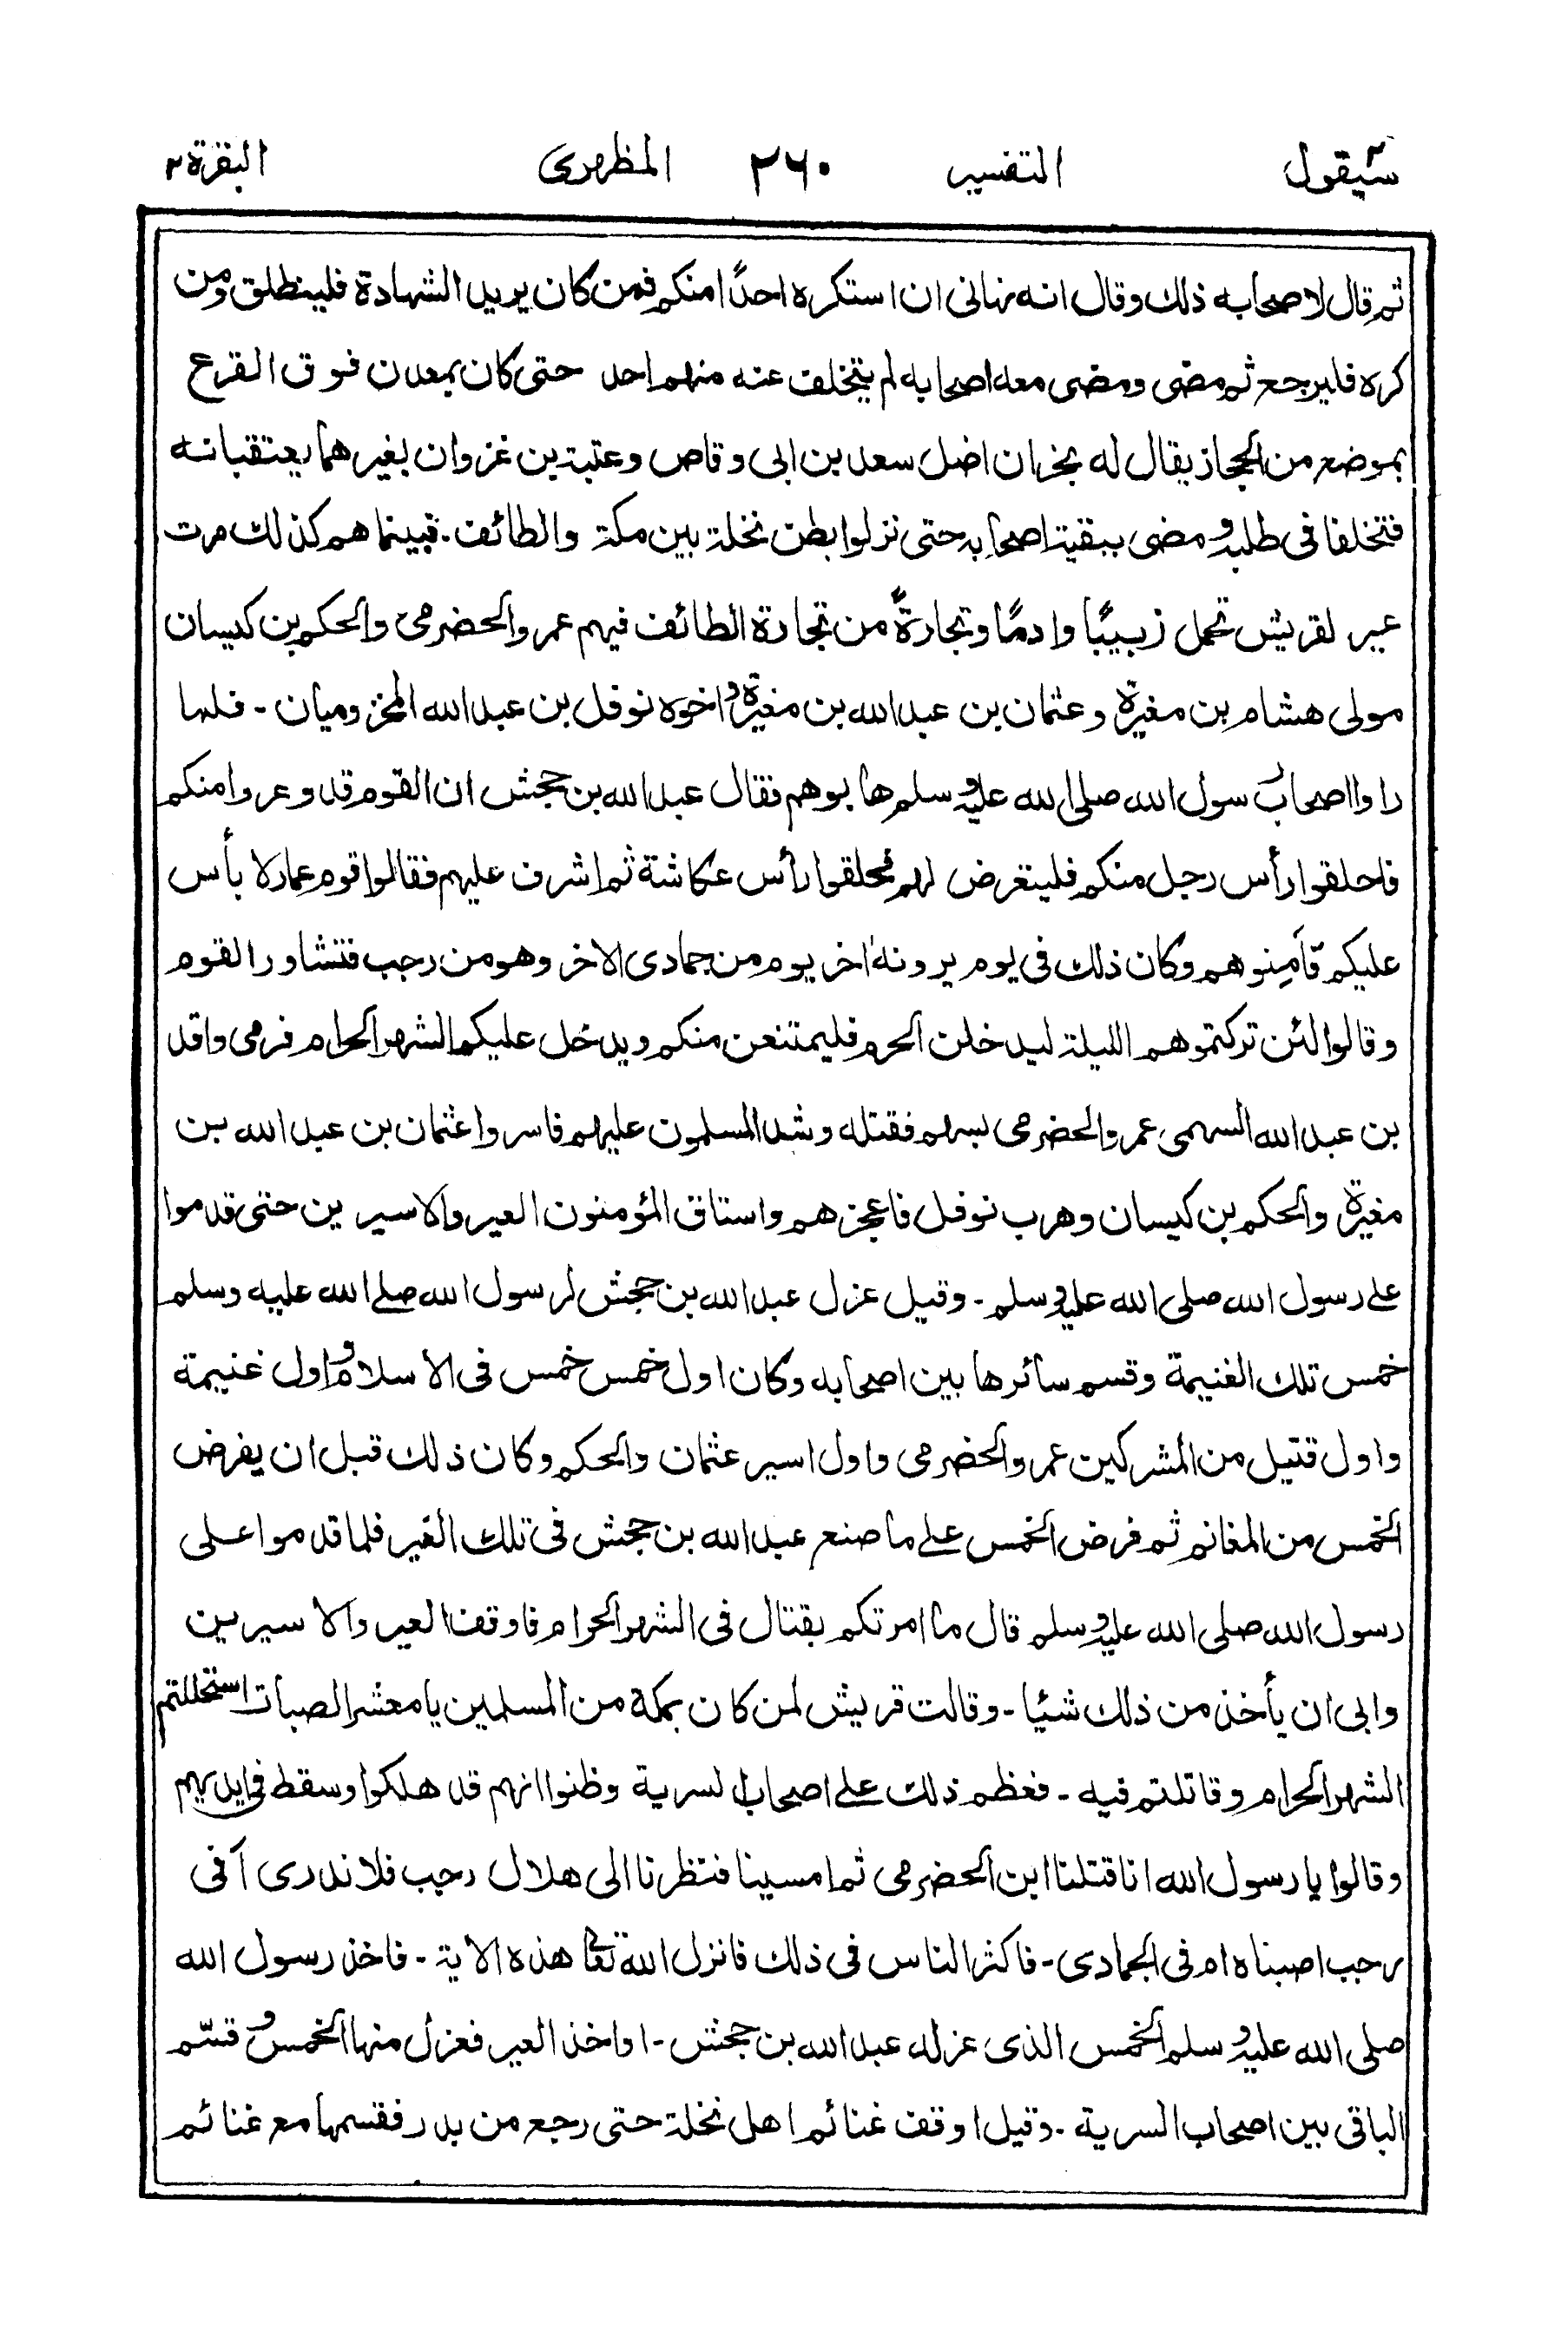 سيقول ٢ التفسير ٢٦٠ المظهرى البقرة ٢
ثم قال لاصحابه ذلك وقال انه نهانى ان استكره احدًا منكم فمن كان يريد الشهادة فلينطلق ومن
كره فليرجع ثم مضى ومضى معه اصحابه لم يتخلف عنه منهم احد حتى كان بمعدن فوق القرع
بموضع من الحجاز يقال له بحران اضل سعد بن ابى وقاص وعتبة بن غزوان بغيرهما يعتقبانه
فتخلفا فى طلبه ومضى ببقية اصحابه حتى نزلوا بطن نخلة بين مكة والطائف. فبينما هم كذلك مرت
عير لقريش تحمل زبيبًا وادمًا وتجارةً من تجارة الطائف فيهم عمرو الحضرمى والحكم بن كيسان
مولى هشام بن مغيرة وعثمان بن عبد الله بن مغيرة واخوه نوفل بن عبد الله المخزوميان - فلما
راوا اصحاب رسول الله صلى الله عليه وسلم هابوهم فقال عبد الله بن جحش ان القوم قد وعروا منكم
فاحلقوا رأس رجل منكم فليتعرض لهم فحلقوا رأس عكاشة ثم اشرف عليهم فقالوا قوم عمار لا بأس
عليكم فآمنوهم وكان ذلك فى يوم يرونه اخر يوم من جمادى الاخر وهو من رجب فتشاور القوم
وقالوا لئن تركتموهم الليلة ليدخلن الحرم فليمتنعن منكم ويدخل عليكم الشهر الحرام فرمى واقد
بن عبد الله السهمى عمرو الحضرمى بسهم فقتله وشد المسلمون عليهم فاسروا عثمان بن عبد الله بن
مغيرة والحكم بن كيسان وهرب نوفل فاعجزهم واستاق المؤمنون العير والاسيرين حتى قدموا
على رسول الله صلى الله عليه وسلم - وقيل عزل عبد الله بن جحش لرسول الله صلى الله عليه وسلم
خمس تلك الغنيمة وقسم سائرها بين اصحابه وكان اول خمس خمس فى الاسلام واول غنيمة
واول قتيل من المشركين عمرو الحضرمى واول اسير عثمان والحكم وكان ذلك قبل ان يفرض
الخمس من المغانم ثم فرض الخمس على ما صنع عبد الله بن جحش فى تلك الغير فلما قدموا على
رسول الله صلى الله عليه وسلم قال ما امرتكم بقتال فى الشهر الحرام فاوقف العير والاسيرين
وابى ان يأخذ من ذلك شيئا - وقالت قريش لمن كان بمكة من المسلمين يا معشر الصبات استحللتم
الشهر الحرام وقاتلتم فيه - فعظم ذلك على اصحاب السرية وظنوا انهم قد هلكوا وسقط فى ايديهم
وقالوا يا رسول الله انا قتلنا ابن الحضرمى ثم امسينا فنتظرنا الى هلال رجب فلا ندرى آفى
رجب اصبناه ام فى الجمادى - فاكثر الناس فى ذلك فانزل الله تعالى هذه الاية - فاخذ رسول الله
صلى الله عليه وسلم الخمس الذى عزله عبد الله بن جحش - او اخذ العير فعزل منها الخمس وقسّم
الباقى بين اصحاب السرية - وقيل اوقف غنائم اهل نخلة حتى رجع من بدر فقسمها مع غنائم